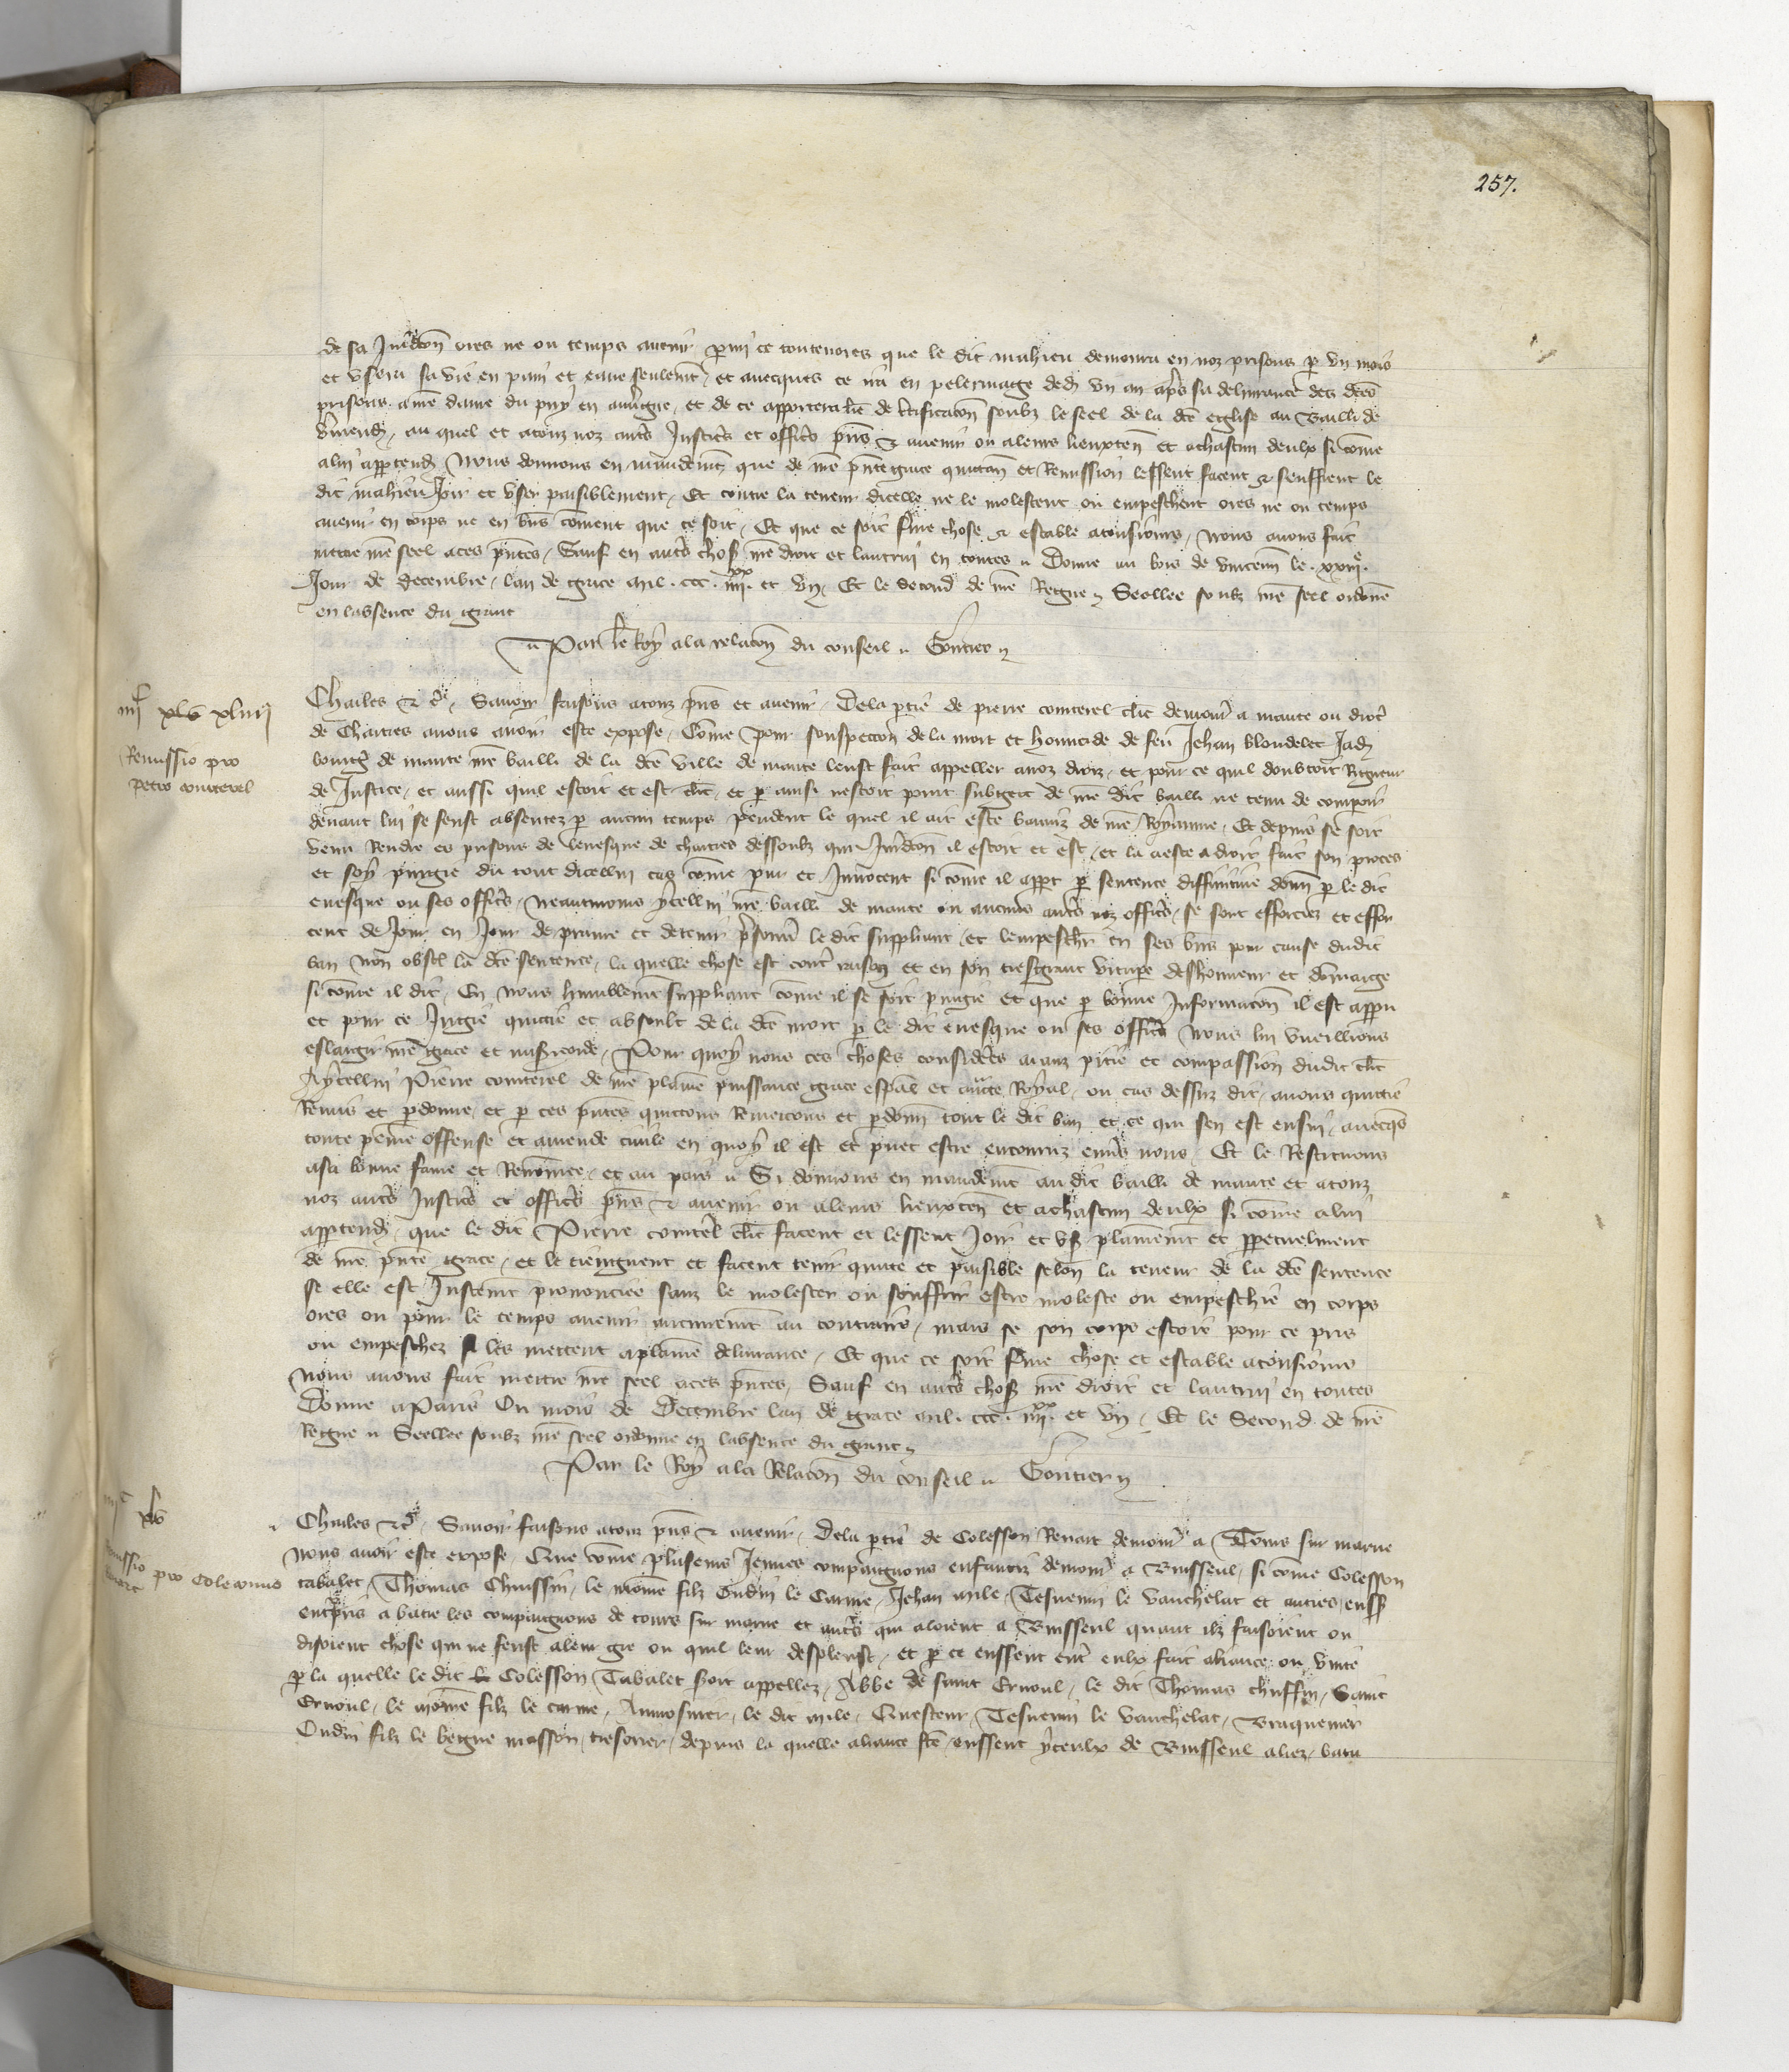 257.
de sa Iuridcon ores ne ou temps avenir parmi ce toutevoies que le dit mahieu demourra en noz prisons p un mois
et usera sa vie en pain et eaue seulemt, et avecques ce ira en pelerinage dedens un an apres sa delivrance des dces
prisons a nre dame du puy en auvgne, et de ce apportera lre de certificacon soubz le seel de la dce eglise au Bailli de
vmend, au quel et a touz noz autres Justices et offices pns & avenir ou a leurs lieuxten et a chascun deulx si come
a lui appartend Nous donnons en mandemt que de nre pnte grace quittan et Remission lessent facent & seuffrent le
dit mahieu Joir et user paisiblement, Et contre la teneur dicelle ne le molestent ou empeschent ores ne ou temps
avenir en corps ne en biens coment que ce soit, Et que ce soit ferme chose & estable a tousiours, Nous avons fait
mettre nre seel a ces pntes, Sauf en autres choses nre droit et lautrui en toutes Donne au bois de vincenn le .xxiije.
Jour de decembre, lan de grace mil. ccc. iiijxx. et vij, Et le second de nre Regne Seellee soubz nre seel ordene
en labsence du grant
Par le Roy a la relacon du conseil Gontier
iiij xlv xliiij
Remissio pro
petro conterel
Charles &c, Savoir faisons a touz pns et avenir, De la partie de pierre conterel clerc demour a mante ou dioc
de Chartres avons avoir este expose, Come pour souspeccon de la mort et homicide de feu Jehan blondelet Jadis
bourg de mante nre bailli de la dce ville de mante leust fait appeller a noz droiz, et pour ce quil doubtoit Rigueur
de Justice, et aussi quil estoit et est clerc, et p ainsi nestoit point subgiet de nre dit bailli ne tenu de comparoir
devant lui se feust absentez p aucun temps pendent le quel il ait este banniz de nre Royaume, Et depuis se soit
venu Rendre es prisons de levesque de chartres dessoubz qui Juridcon il estoit et est, et la a este a droit fait son proces
et soy purgie du tout dicellui cas come pur et Innocent si come il appert p sentence diffinitive donn p le dit
evesque ou ses offices, neantmoins ycellui nre bailli de mante ou aucuns autres noz offices, se sont efforciez et effor
cent de Jour en Jour de prenre et detenir prisonn le dit suppliant, et lempescher en ses biens pour cause dudit
ban non obst la dce sentence, la quelle chose est contre raison et en son tresgrant vitupe deshonneur et domaige
si come il dit, En nous humblemt suppliant come il se soit purgie et que p bonne Informacon il est apparu
et pour ce Jugie quittie et absoult de la dce mort p le dit evesque ou ses offices Nous lui vueillions
eslargir nre grace et misericorde, Pour quoy nous ces choses considerees aians pitie et compassion dudit clerc
A ycellui Pierre conterel de nre plaine puissance grace espal et aucte Royal, ou cas dessuz dit, avons quittie
Remis et pardonne, et p ces pntes quittons Remettons et pardonn tout le dit ban et ce qui sen est ensui, avecqs
toute peine offense et amende civile en quoy il est et puet estre encouruz envers nous, Et le Restituons
a sa bonne fame et Renomee, et au pais Si donnons en mandemt au dit bailli de mante et a touz
noz autres Justices et offices pns & avenir ou a leurs lieuxten et a chascun deulx si come a lui
appartend, que le dit Pierre conterel clerc facent et lessent Joir et user plainemt et perpetuelment
de nre pnte grace, et le tiengnent et facent tenir quitte et paisible selon la teneur de la dce sentence
se elle est Justemt prononciee sanz le molester ou souffrir estre moleste ou empeschie en corps
ores ou pour le temps avenir aucunemt au contraire, mais se son corps estoit pour ce pris
ou empeschez les mettent a plaine delivrance, Et que ce soit ferme chose et estable a tousiours
Nous avons fait mettre nre seel a ces pntes, Sauf en autres choses nre droit et lautrui en toutes
Donne a Paris Ou mois de Decembre lan de grace mil. ccc. iiijxx. et vij, Et le Second de nre
Regne Seellee soubz nre seel ordene en labsence du grant
Par le Roy a la Relacon du conseil Gontier
xlv
Remissio pro Colesonno
Renart
Charles &c, Savoir faisons a touz pns & avenir, De la partie de Colesson Renart demour a Tours sur marne
Nous avoir este expose, Que come plusieurs Jeunes compaignons enfantiz demour a Buisseul, si come Colesson
tabalet, Thomas Chuissin, le moine filz Oudin le Carme, Jehan mile, Tesnenin le vauchelat et autres, eussent
entrepris a batre les compaignons de tours sur marne et autres qui aloient a Buisseul quant ilz faisoient ou
disoient chose qui ne feust a leur gre ou quil leur despleust, et p ce eussent entre eulx fait aliance ou unite
p la quelle le dit Colesson Tabalet soit appellez, Abbe de saint Ernoul, le dit Thomas chussin, Saint
Ernoul, le moine filz le carme, Aumosnier, le dit mile, Questeur, Tesnenin le vauchelat, Braquenier
Oudin filz le bergne masson, tresorier, depuis la quelle aliance fce, eussent yceulx de Buisseul aliez, batu